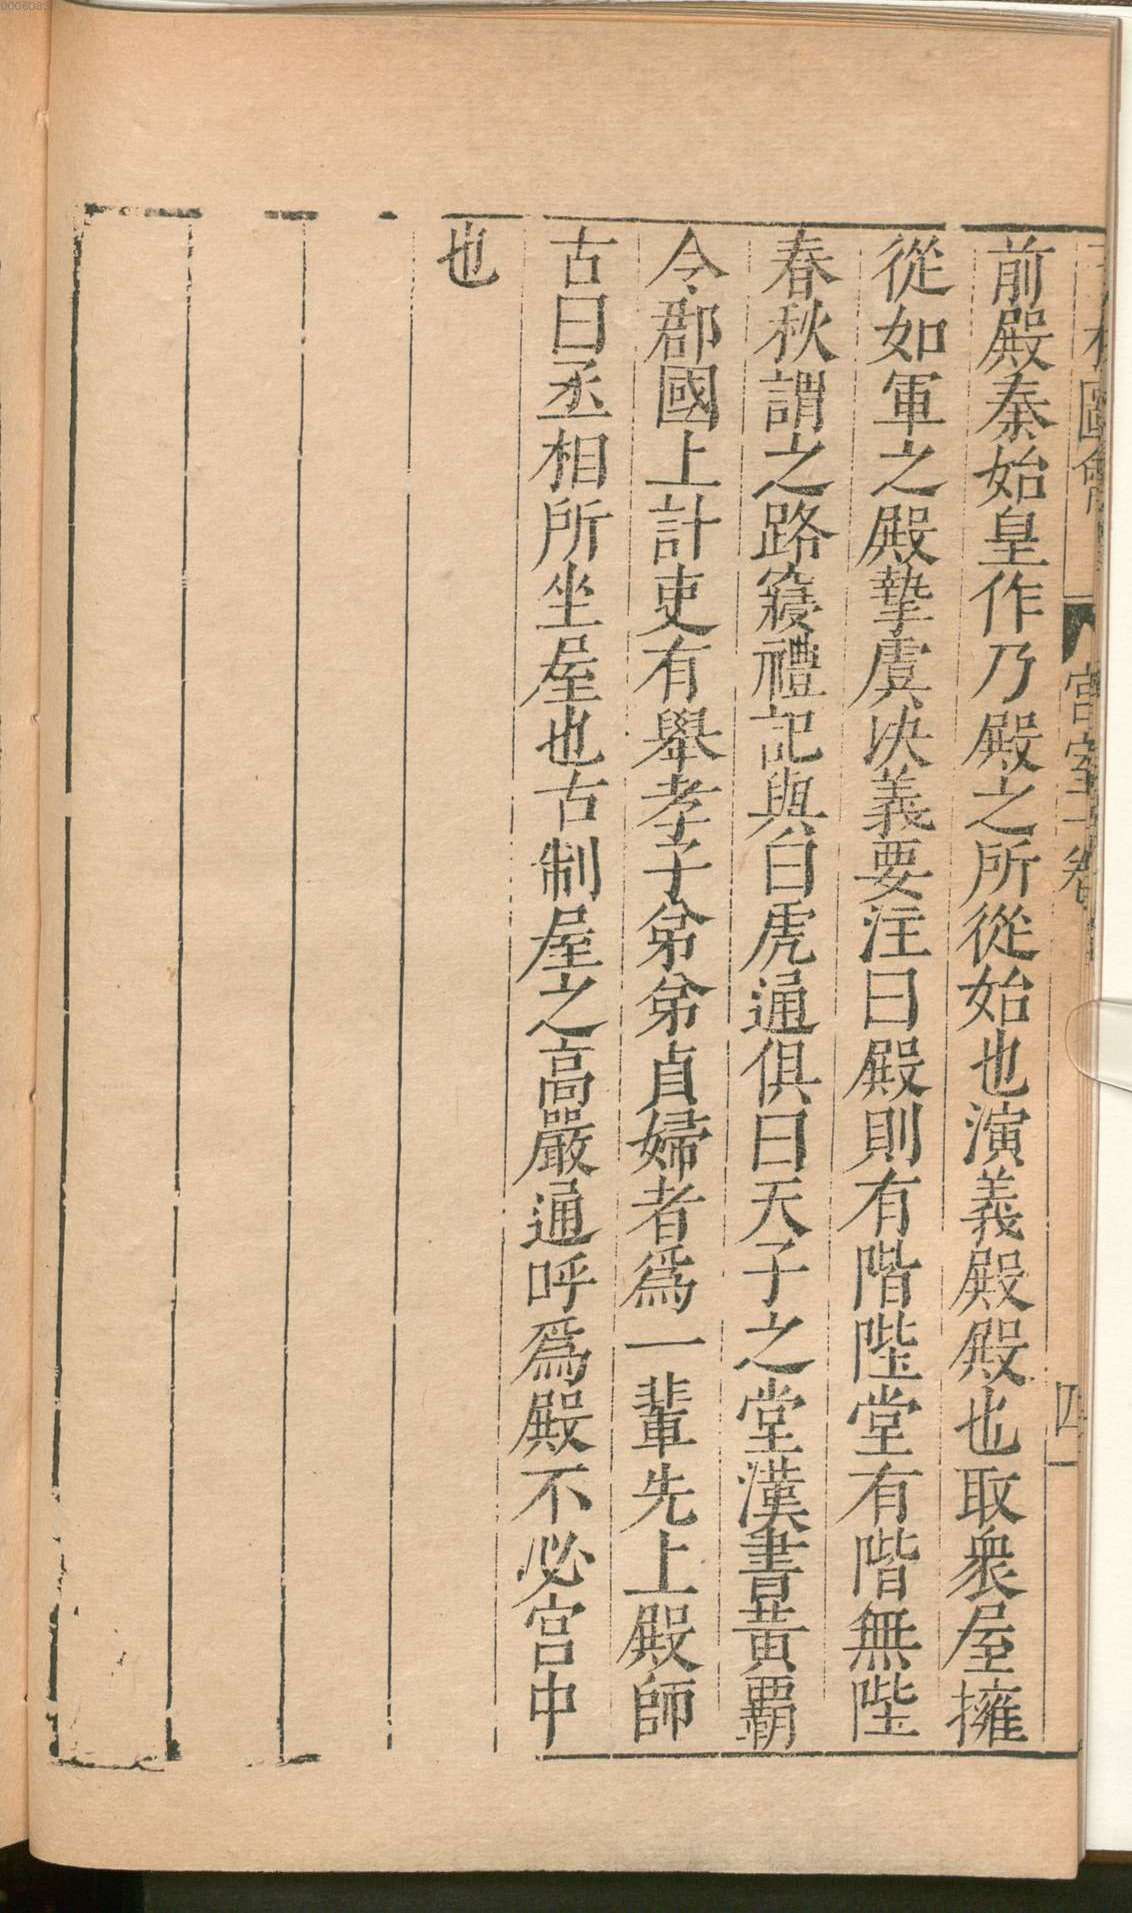 圖會
宮室一卷
四
前殿秦始皇作乃殿之所從始也演義殿殿也取衆屋擁
從如軍之殿摯虞决義要注曰殿則有階陛堂有階無陛
春秋謂之路寢禮記與白虎通俱曰天子之堂漢書黄覇
令郡國上計吏有舉孝子弟弟貞婦者爲一輩先上殿師
古曰丞相所坐屋也古制屋之高嚴通呼爲殿不必宮中
也